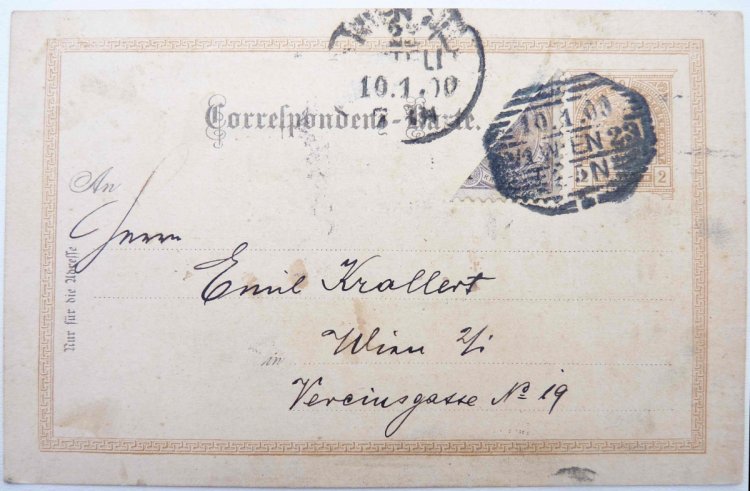 10.1.00
Correspondenz-Karte.
10.1.00
WIEN
2
An
Herrn
Emil Krallert
in Wien 2/i
Vereinsgasse No 19
Nur für die Adresse